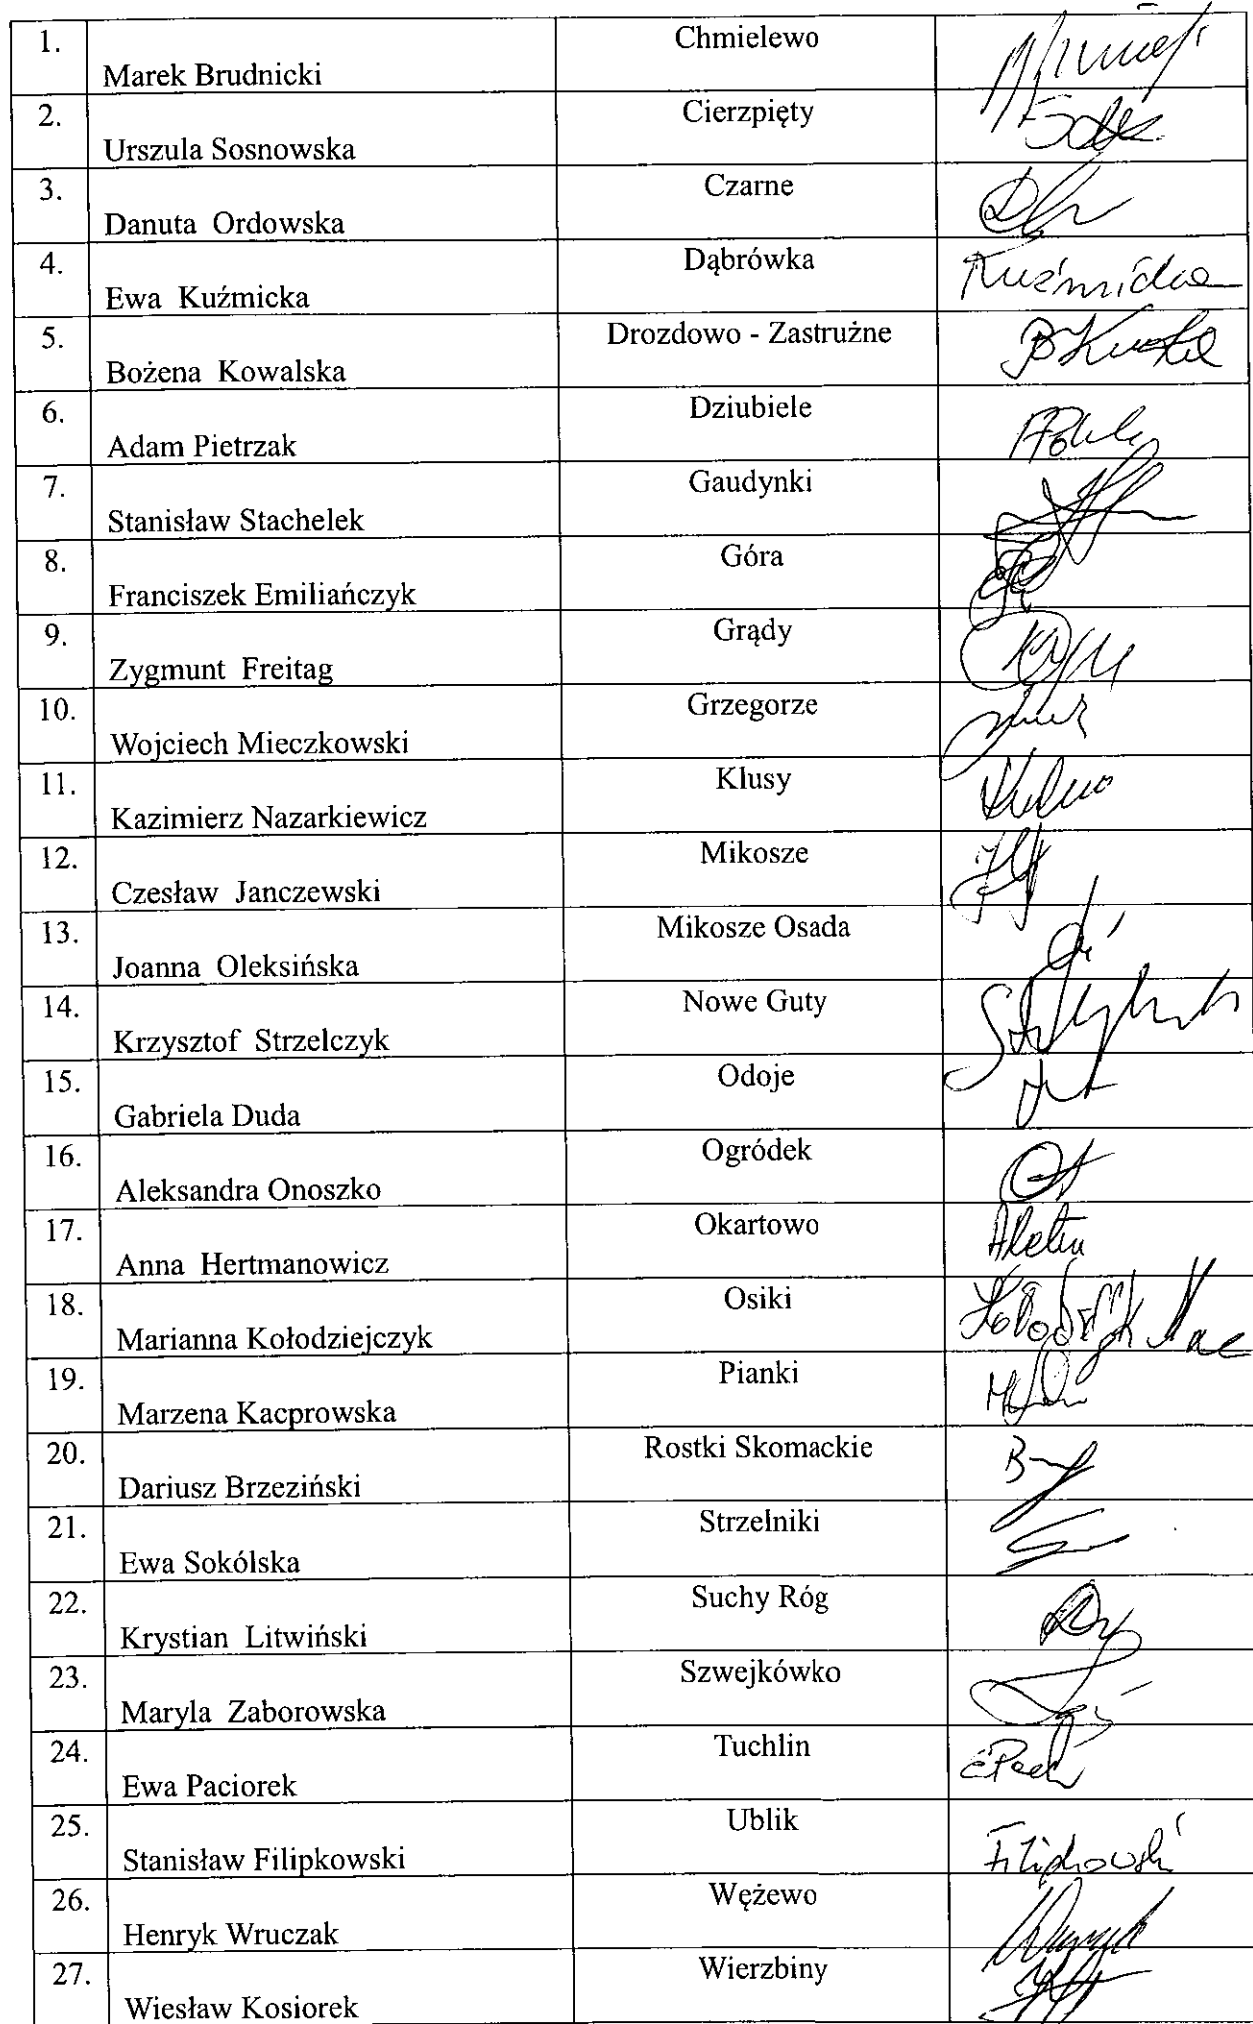 1. Marek Brudnicki Chmielewo
2. Urszula Sosnowska Cierzpięty
3. Danuta Ordowska Czarne
4. Ewa Kuźmicka Dąbrówka Kuźmicka
5. Bożena Kowalska Drozdowo - Zastrużne
6. Adam Pietrzak Dziubiele
7. Stanisław Stachelek Gaudynki
8. Franciszek Emiliańczyk Góra
9. Zygmunt Freitag Grądy
10. Wojciech Mieczkowski Grzegorze
11. Kazimierz Nazarkiewicz Klusy
12. Czesław Janczewski Mikosze
13. Joanna Oleksińska Mikosze Osada
14. Krzysztof Strzelczyk Nowe Guty
15. Gabriela Duda Odoje
16. Aleksandra Onoszko Ogródek
17. Anna Hertmanowicz Okartowo
18. Marianna Kołodziejczyk Osiki
19. Marzena Kacprowska Pianki
20. Dariusz Brzeziński Rostki Skomackie
21. Ewa Sokólska Strzelniki
22. Krystian Litwiński Suchy Róg
23. Maryla Zaborowska Szwejkówko
24. Ewa Paciorek Tuchlin
25. Stanisław Filipkowski Ublik Filipkowski
26. Henryk Wruczak Wężewo
27. Wiesław Kosiorek Wierzbiny